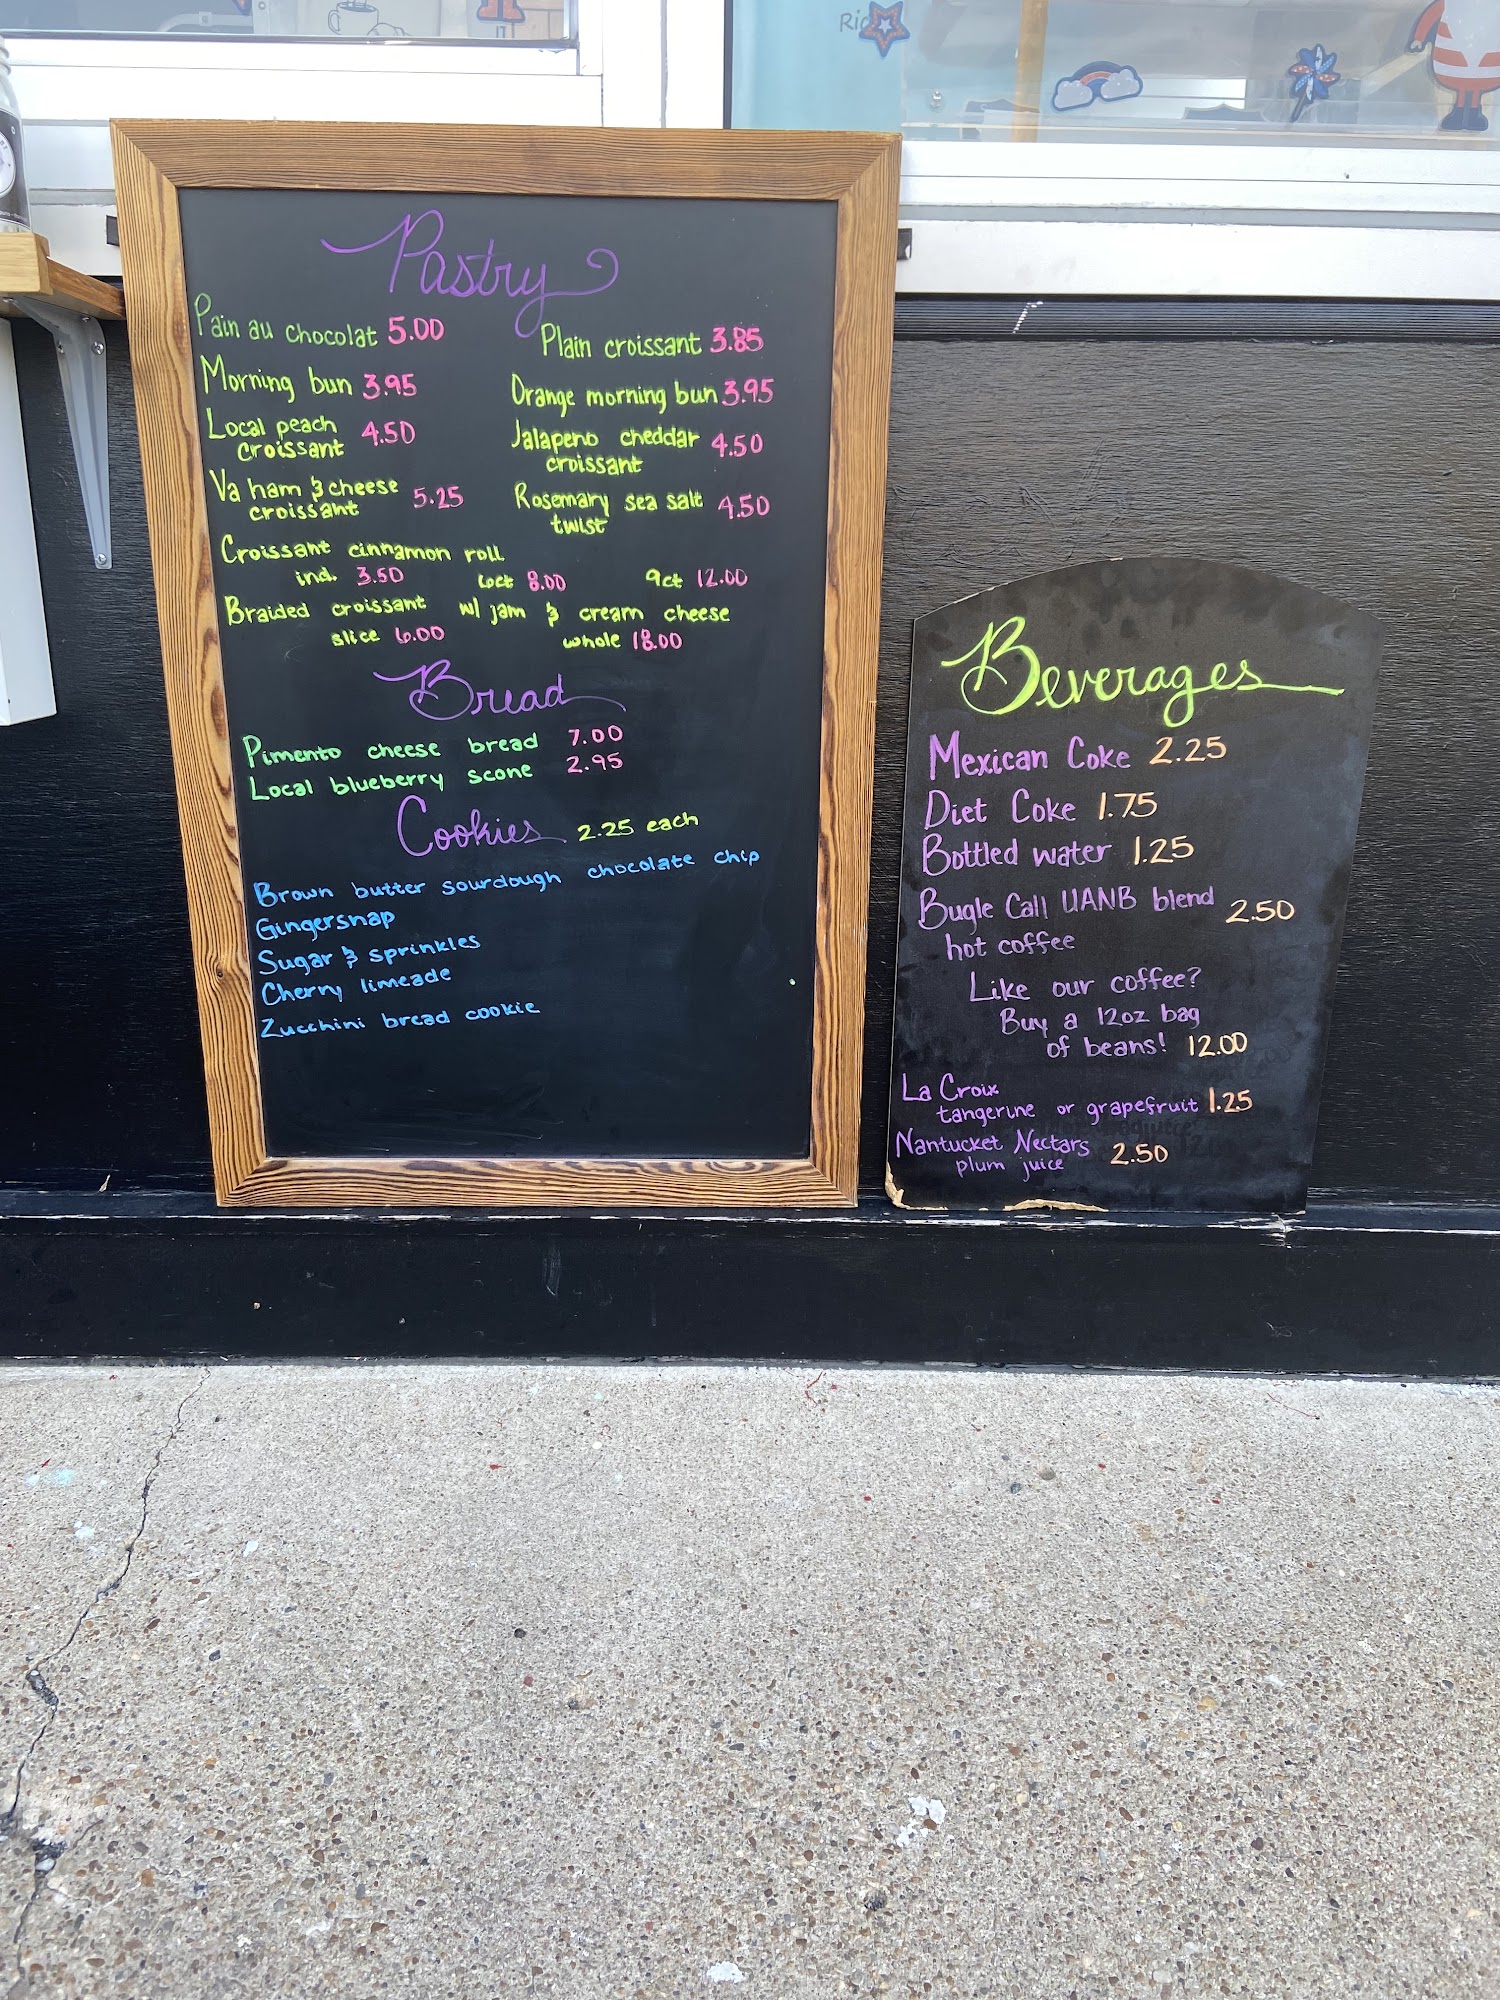 Ric
Pastry
Pain au chocolat 5.00
Plain croissant 3.85
Morning bun 3.95
Orange morning bun 3.95
Local peach
croissant 4.50
Jalapeno cheddar
croissant 4.50
Va ham & cheese
croissant 5.25
Rosemary sea salt
twist 4.50
Croissant cinnamon roll
ind. 3.50 6ct 8.00 9ct 12.00
Braided croissant w/ jam & cream cheese
slice 6.00 whole 18.00
Bread
Pimento cheese bread 7.00
Local blueberry scone 2.95
Cookies 2.25 each
Brown butter sourdough chocolate chip
Gingersnap
Sugar & sprinkles
Cherry limeade
Zucchini bread cookie
Beverages
Mexican Coke 2.25
Diet Coke 1.75
Bottled water 1.25
Bugle Call UANB blend 2.50
hot coffee
Like our coffee?
Buy a 12oz bag
of beans! 12.00
La Croix
tangerine or grapefruit 1.25
Nantucket Nectars
plum juice 2.50